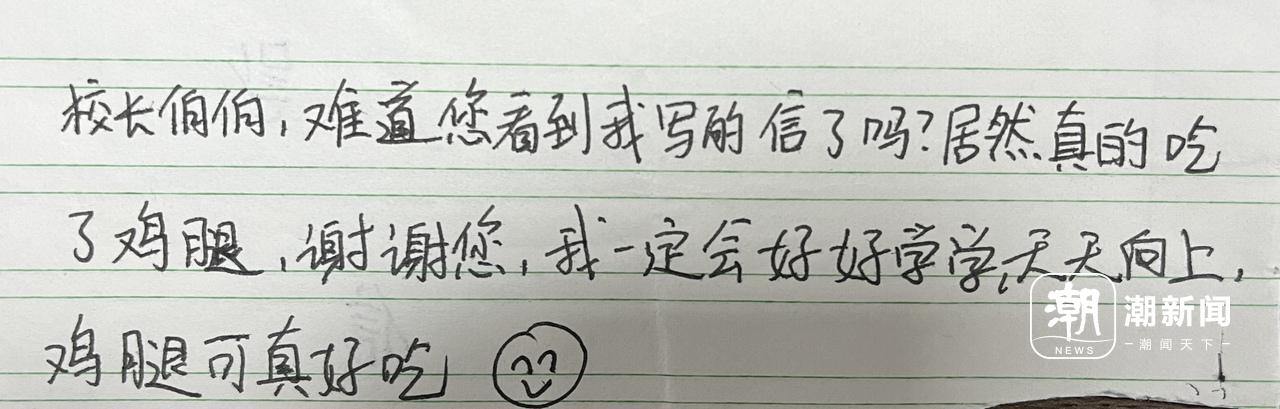 校长伯伯,难道您看到我写的信了吗?居然真的吃
了鸡腿,谢谢您,我一定会好好学学,天天向上,
鸡腿可真好吃
潮 潮新闻
NEWS —潮闻天下—